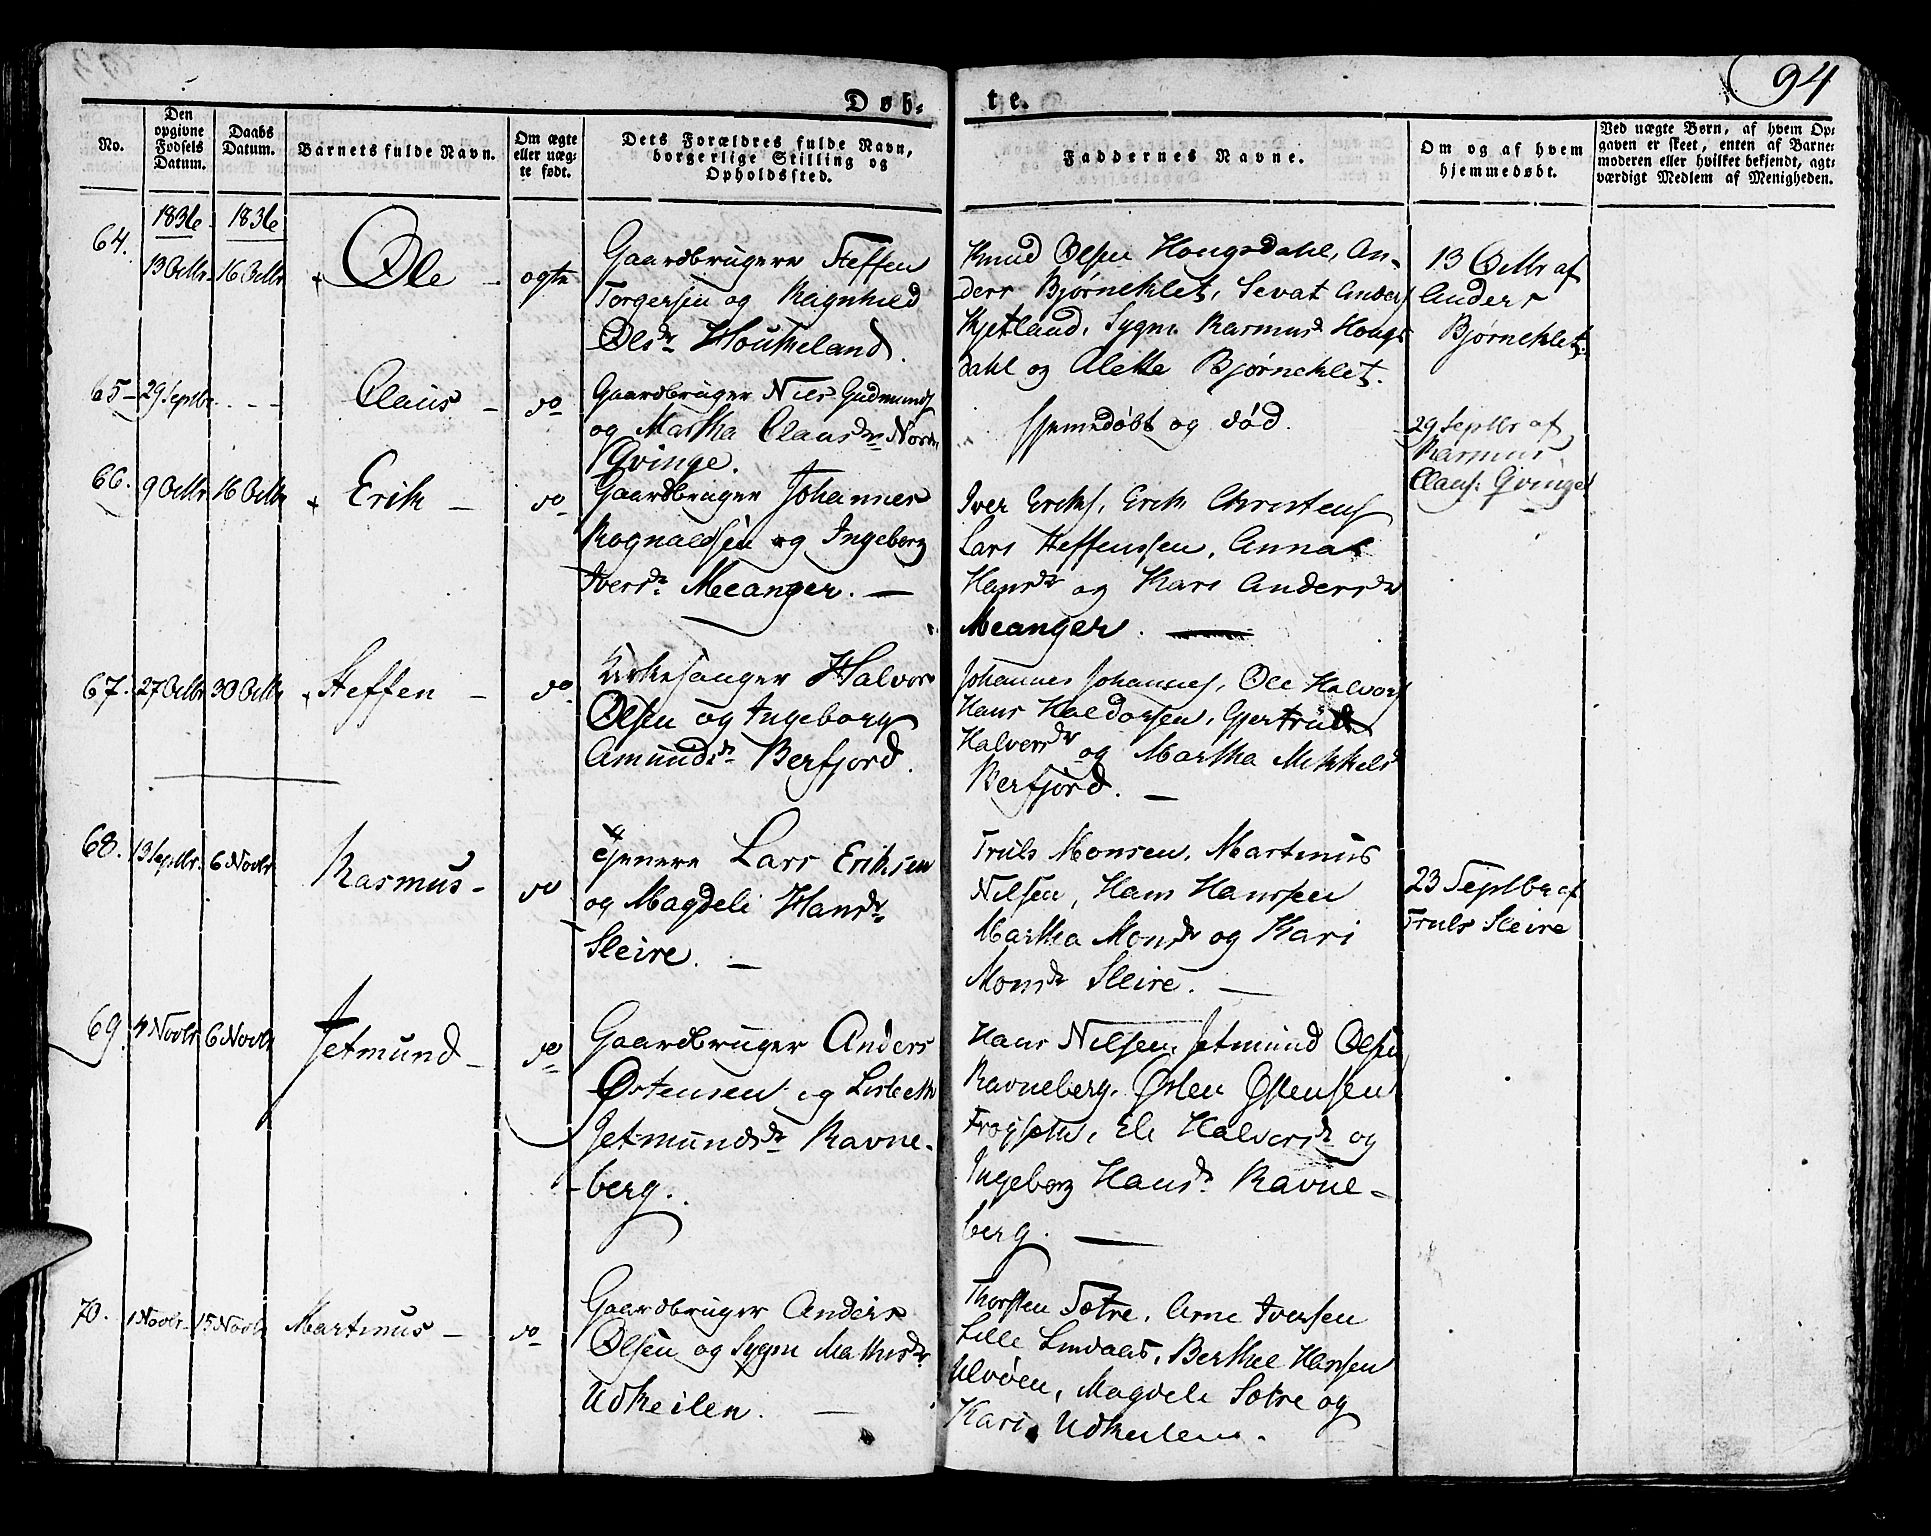 94
Døb-
te.
No.
Den opgivne Fødsels Datum.
Daabs Datum.
Barnets fulde Navn.
Om ægte eller uægte født.
Dets Forældres fulde Navn, borgerlige Stilling og Opholdssted.
Faddernes Navne.
Om og af hvem hjemmedøbt.
Ved uægte Børn, af hvem Opgaven er skeet, enten af Barnemoderen eller hvilket bekjendt, agtværdigt Medlem af Menigheden.
1836
1836
64.
13 Octbr
16 Octbr
Ole
ægte
Gaardbrugere Steffen
Torgersen og Ragnhild
Olsdr Houkeland.
Knud Olsen Hougsdahl, An-
ders Bjørneklet, Sevat Anders
Kjetland, Sygni Rasmusdr Hougs
dahl og Alette Bjørneklet.
13 Octbr af
Anders
Bjørneklet.
65
29 Septbr
Claus
do
Gaardbruger Nils Gudmunds
og Martha Clausdr Nordre
Qvinge.
hjemedøbt og død.
29 Septbr af
Rasmus
Claus: Qvinge
66.
9 Octbr
16 Octbr
Erik
do
Gaardbruger Johannes
Rognaldsen og Ingeborg
Iversdr Meanger.
Iver Eriks, Erik Christens
Lars Steffenssen, Anna
Hansdr og Kari Andersdr
Meanger.
67.
27 Octbr
30 Octbr
Steffen
do
Kirkesanger Halvor
Olsen og Ingeborg
Amundsdr Berfjord.
Johannes Johannes, Ole Halvors
Hans Haldorsen, Gjertrud
Halversdr og Martha Mikkelsd
Berfjord.
68.
13 Septbr
6 Novbr
Rasmus
do
Lars Eriksen
og Magdeli Hansdr
Sleire.
Truls Monsen, Martinus
Nilsen, Hans Hanssen
Martha Monsdr og Kari
Monsdr Sleire.
23 Septbr af
Truls Sleire
69.
4 Novbr
6 Novbr
Jetmund
do
Gaardbruger Anders
Østensen og Lisbeth
Jetmundsdr Ravne-
berg.
Hans Nilsen, Jetmund Olsen
Ravneberg, Østen Østensen
Frøysetn, Eli Halversdr og
Ingeborg Hansdr Ravne-
berg.
70.
1 Novbr
15 Novbr
Martinus
do
Gaardbruger Anders
Olsen og Sygni Mathisdr
Udkeilen.
Thorsten Sætre, Arne Iversen
Lille Lindaas, Berthel Hansen
Ulvøen, Magdeli Sætre og
Kari Udkeilen.